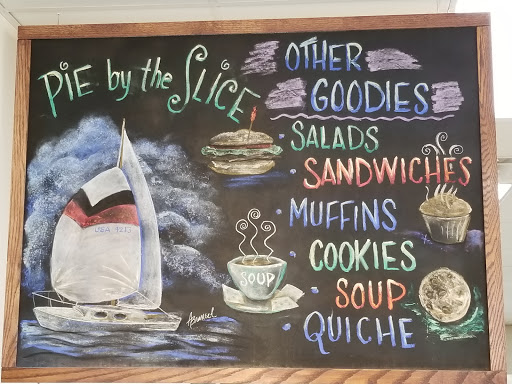 PiE by the SLiCE
OTHER
GOODIES
• SALADS
• SANDWICHES
• MUFFINS
COOKIES
• SOUP
• QUICHE
SOUP